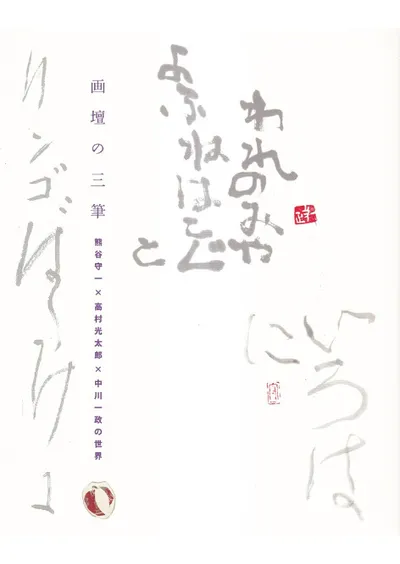 われのみや
よふねはこぐ
と
いろは
に
画壇の三筆
熊谷守一×高村光太郎×中川一政の世界
リンゴばたけに